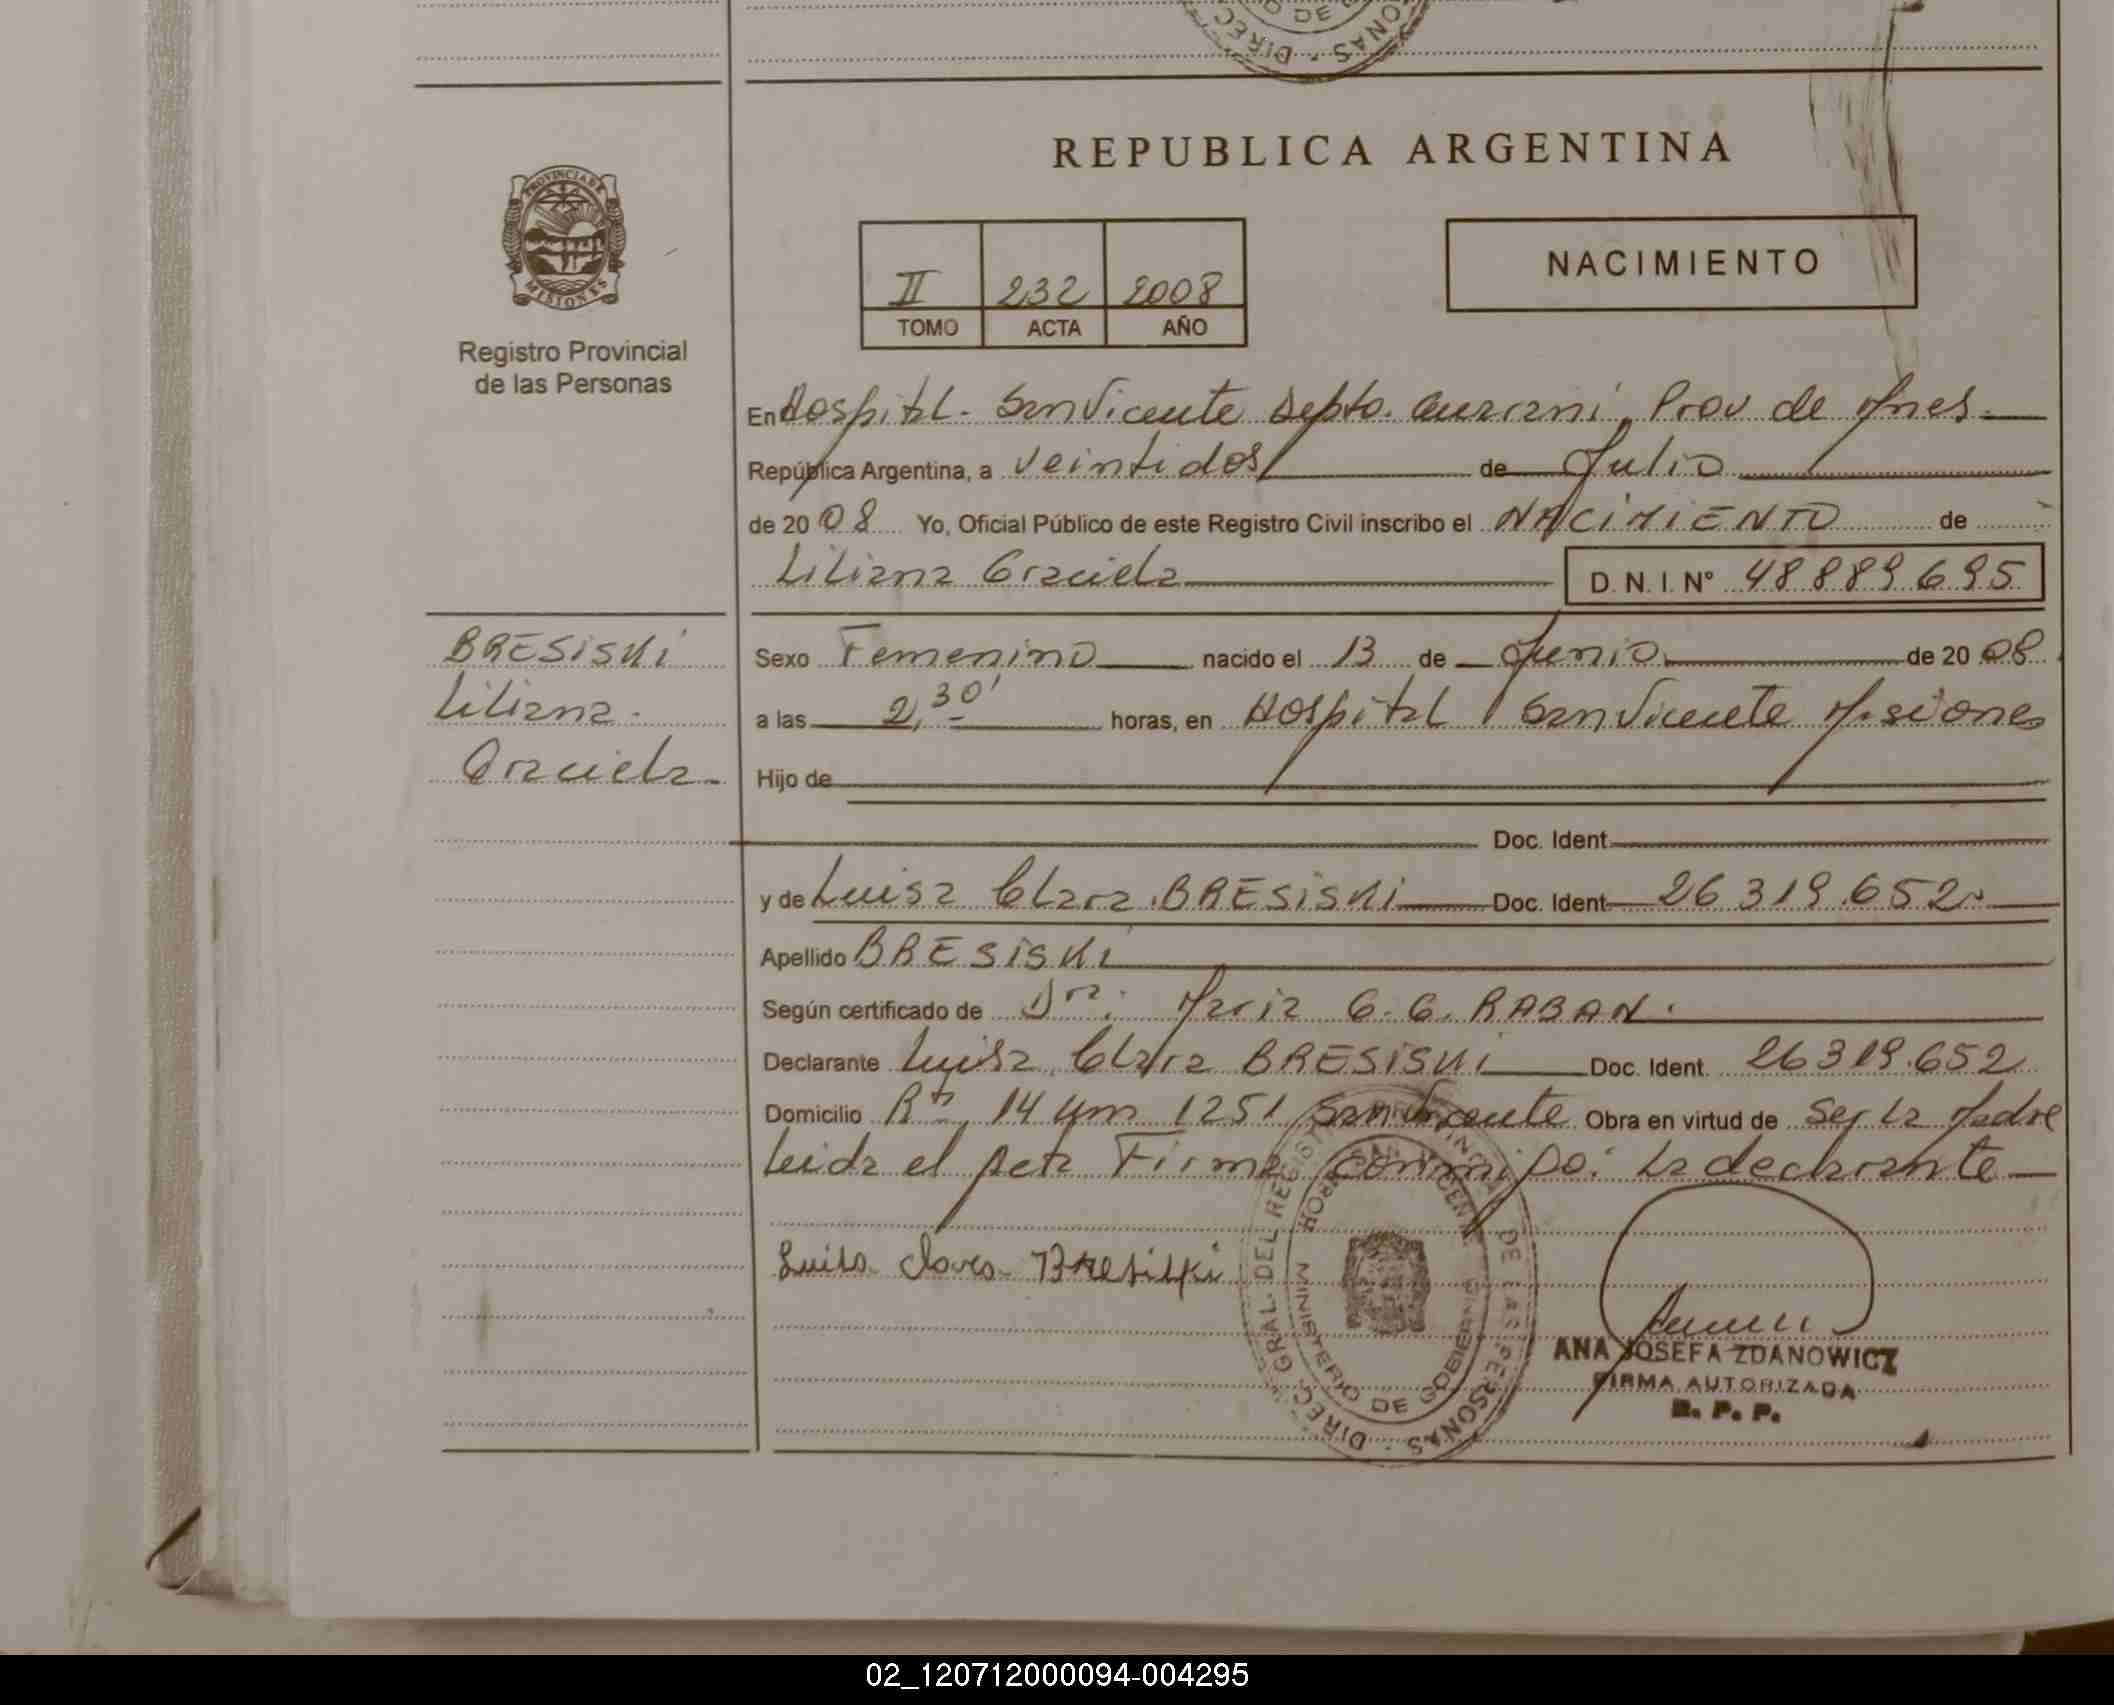 DIREC
DE
ONAS
REPUBLICA ARGENTINA
PROVINCIA DE
MISIONES
II 232 2008
TOMO ACTA AÑO
NACIMIENTO
Registro Provincial
de las Personas
En Hospital. San Vicente Depto. Guarani, Prov de Mnes
República Argentina, a veintidos de Julio
de 2008 Yo, Oficial Público de este Registro Civil inscribo el NACIMIENTO de
Liliana Graciela D. N. I. N° 48889695
BRESISKI
Liliana.
Graciela
Sexo Femenino nacido el 13 de Junio de 2008
a las 2,30' horas, en Hospital San Vicente Misiones
Hijo de
Doc. Ident.
y de Luisa Clara BRESISKI Doc. Ident. 26319.652
Apellido BRESISKI
Según certificado de Dra. Maria G. G. RABAN.
Declarante Luisa Clara BRESISKI Doc. Ident. 26319.652
Domicilio Rta 14 Km 1251 San Vicente Obra en virtud de Ser la Madre
Leida el Acta Firma conmigo: La declarante
Luisa Clara Bresiski
DIREC. GRAL. DEL REGISTRO PROVINCIAL DE LAS PERSONAS
MINISTERIO DE GOBIERNO
SAN VICENTE
ANA JOSEFA ZDANOWICZ
FIRMA AUTORIZADA
R. P. P.
02_120712000094-004295